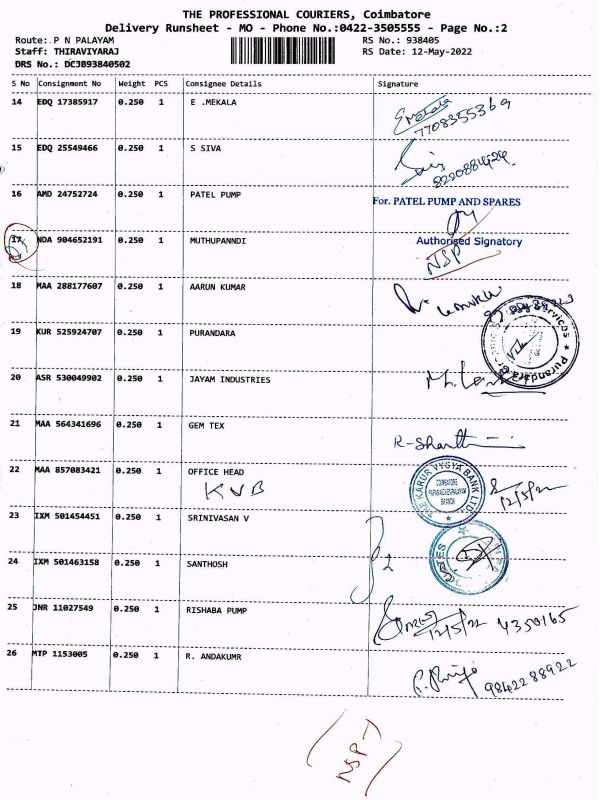 THE PROFESSIONAL COURIERS, Coimbatore
Delivery Runsheet - MO - Phone No.:0422-3505555 - Page No.:2
Route:.P N PALAYAM RS No.: 938405
Staff: THIRAVIYARAJ RS Date: 12-May-2022
DRS No.: DCJB93840502
S No Consignment No Weight PCS Consignee Details Signature
14 EDQ 17385917 0.250 1 E .MEKALA
7708355369
15 EDQ 25549466 0.250 1 S SIVA
16 AMD 24752724 0.250 1 PATEL PUMP For. PATEL PUMP AND SPARES
17 NDA 904652191 0.250 1 MUTHUPANNDI Authorised Signatory
NSP
18 MAA 288177607 0.250 1 AARUN KUMAR
19 KUR 525924707 0.250 1 PURANDARA
20 ASR 530049902 0.250 1 JAYAM INDUSTRIES
21 MAA 564341696 0.250 1 GEM TEX
22 MAA 857083421 0.250 1 OFFICE HEAD
KVB THE KARUR VYSYA BANK LTD. COIMBATORE BRANCH 12/5/22
23 IXM 501454451 0.250 1 SRINIVASAN V
24 IXM 501463158 0.250 1 SANTHOSH
25 JNR 11027549 0.250 1 RISHABA PUMP 12/5/22 4350165
26 MTP 1153005 0.250 1 R. ANDAKUMR
9842288922